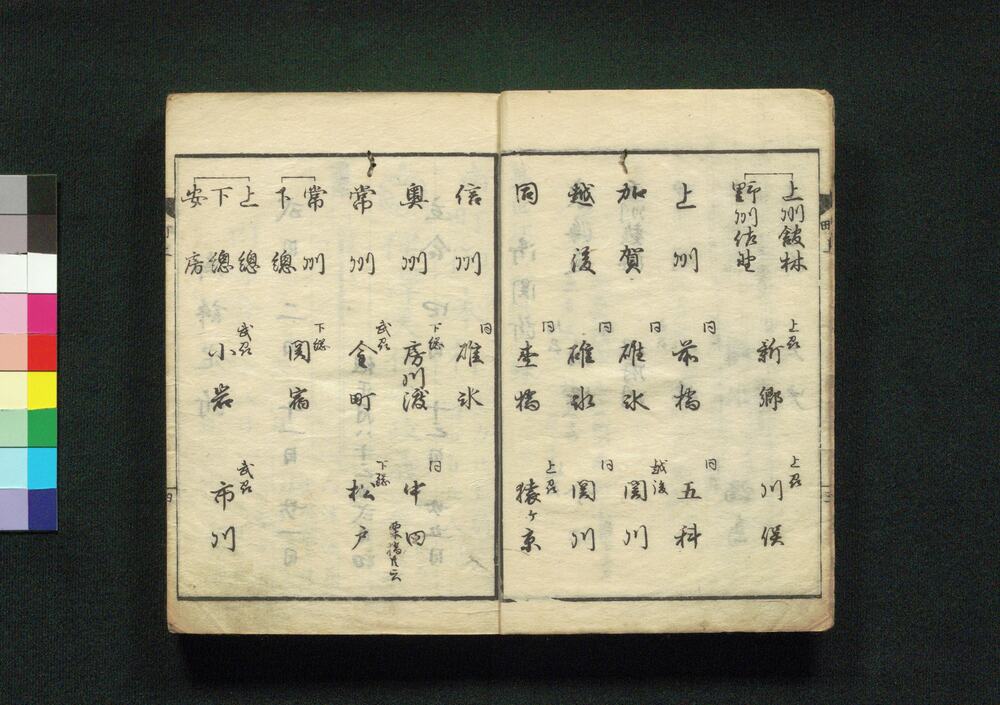 上州館林
野州佐野
上州 新郷
上州 川俣
上州
同 前橋
同 五科
加賀
同 碓氷
越後 関川
越後
同 碓氷
同 関川
同
同 杢橋
上州 猿ヶ京
信州
同 碓氷
奥州
下総 房川渡
同 中田
栗橋共云
常州
武州 金町
下総 松戸
常州
下總
下総 関宿
上總
下總
安房
武州 小岩
武州 市川